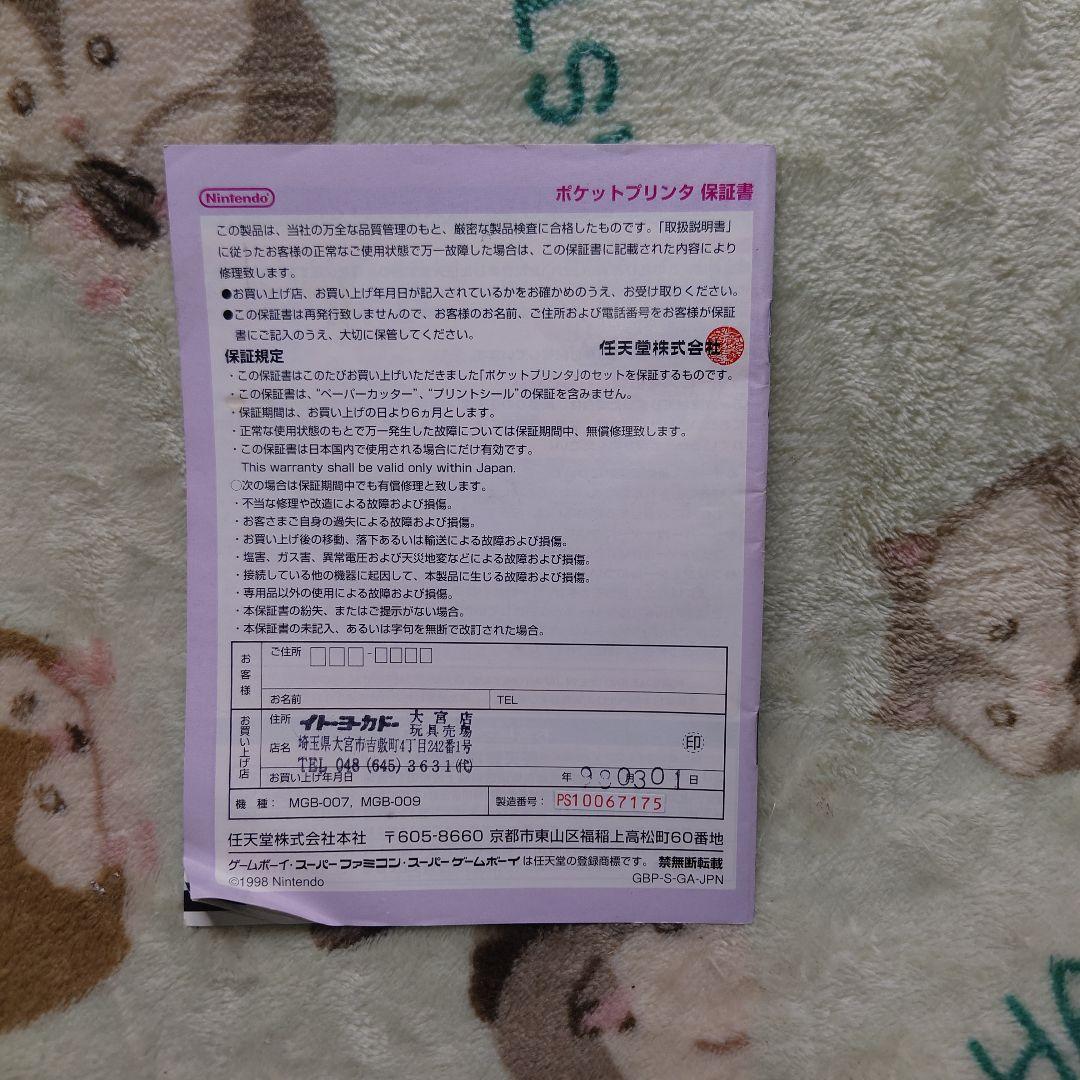 Nintendo
ポケットプリンタ 保証書
この製品は、当社の万全な品質管理のもと、厳密な製品検査に合格したものです。「取扱説明書」
に従ったお客様の正常なご使用状態で万一故障した場合は、この保証書に記載された内容により
修理致します。
●お買い上げ店、お買い上げ年月日が記入されているかをお確かめのうえ、お受け取りください。
●この保証書は再発行致しませんので、お客様のお名前、ご住所および電話番号をお客様が保証
書にご記入のうえ、大切に保管してください。
任天堂株式会社
保証規定
・この保証書はこのたびお買い上げいただきました「ポケットプリンタ」のセットを保証するものです。
・この保証書は、“ペーパーカッター”、“プリントシール”の保証を含みません。
・保証期間は、お買い上げの日より6ヵ月とします。
・正常な使用状態のもとで万一発生した故障については保証期間中、無償修理致します。
・この保証書は日本国内で使用される場合にだけ有効です。
This warranty shall be valid only within Japan.
○次の場合は保証期間中でも有償修理と致します。
・不当な修理や改造による故障および損傷。
・お客さまご自身の過失による故障および損傷。
・お買い上げ後の移動、落下あるいは輸送による故障および損傷。
・塩害、ガス害、異常電圧および天災地変などによる故障および損傷。
・接続している他の機器に起因して、本製品に生じる故障および損傷。
・専用品以外の使用による故障および損傷。
・本保証書の紛失、またはご提示がない場合。
・本保証書の未記入、あるいは字句を無断で改訂された場合。
お客様
ご住所 □□□-□□□□
お名前
TEL
お買い上げ店
住所
イトーヨーカドー 大宮店
玩具売場
店名
埼玉県大宮市吉敷町4丁目242番1号
TEL 048 (645) 3631 (代)
印
お買い上げ年月日
年 月 日
980301
機 種： MGB-007, MGB-009
製造番号： PS10067175
任天堂株式会社本社 〒605-8660 京都市東山区福稲上高松町60番地
ゲームボーイ・スーパーファミコン・スーパーゲームボーイは任天堂の登録商標です。 禁無断転載
©1998 Nintendo
GBP-S-GA-JPN